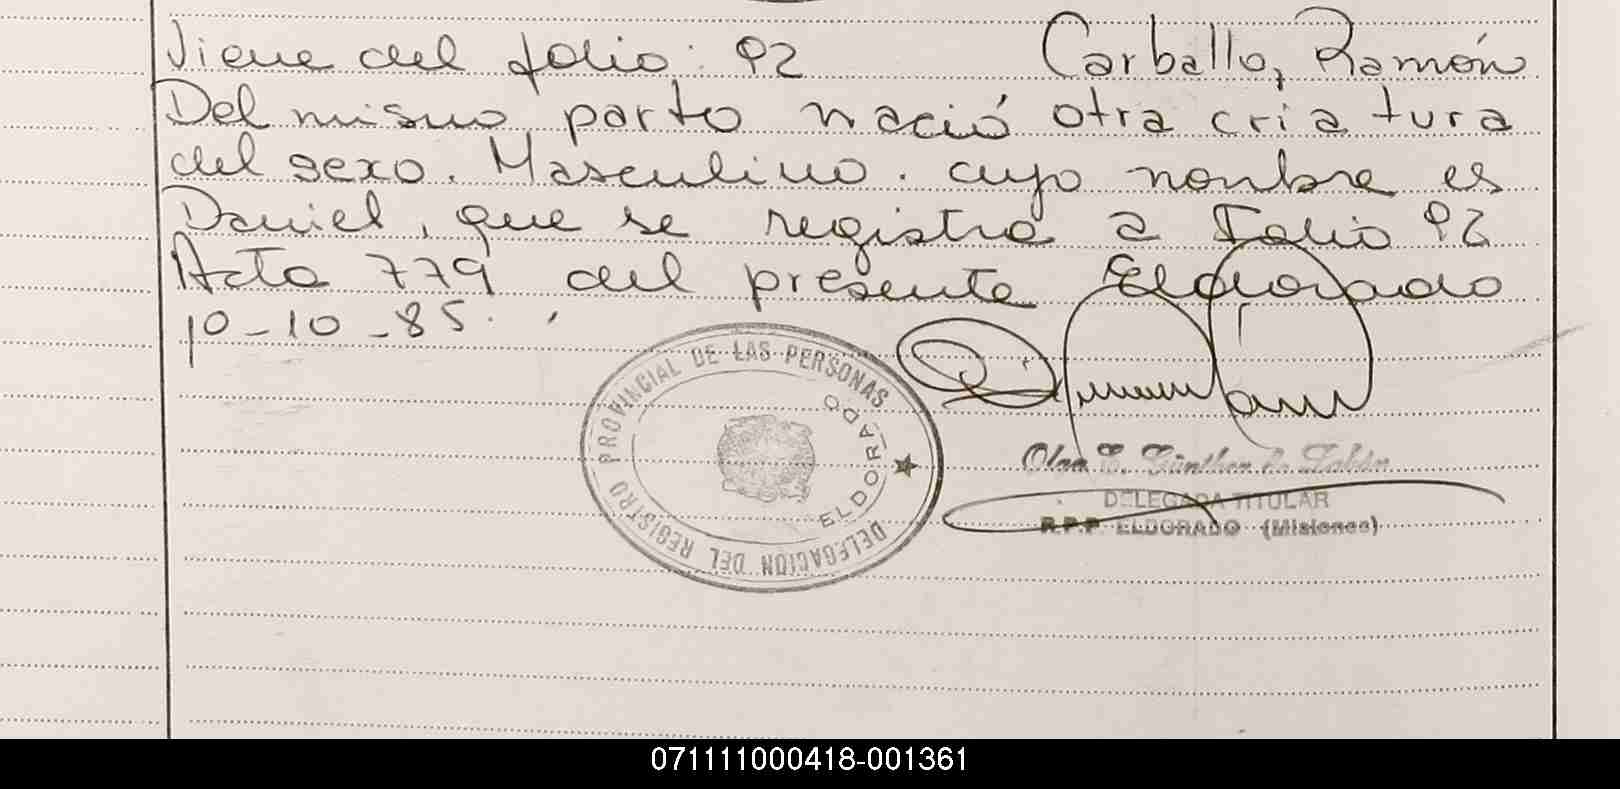 Viene del folio: 92 Carballo, Ramón
Del mismo parto nació otra criatura
del sexo. Masculino. cuyo nombre es
Daniel, que se registra a Folio 92
Acta 779 del presente Eldorado
10-10-85.
DELEGACION DEL REGISTRO PROVINCIAL DE LAS PERSONAS
ELDORADO
Olga E. Günther de
DELEGADA TITULAR
R.P.P. ELDORADO (Misiones)
071111000418-001361